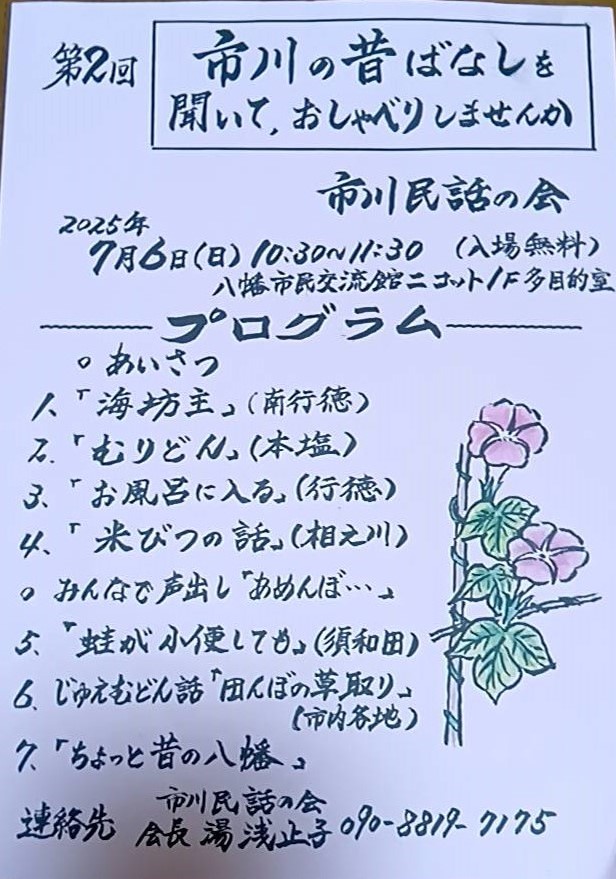 第2回
市川の昔ばなしを
聞いて、おしゃべりしませんか
市川民話の会
2025年
7月6日(日)10:30~11:30 (入場無料)
八幡市民交流館ニコット1F多目的室
プログラム
○ あいさつ
1、「海坊主」(南行徳)
2、「むりどん」(本塩)
3、「お風呂に入る」(行徳)
4、「米びつの話」(相之川)
○ みんなで声出し「あめんぼ…」
5、「蛙が小便しても」(須和田)
6、じゅえむどん話「田んぼの草取り」
(市内各地)
7、「ちょっと昔の八幡」
市川民話の会
連絡先 会長 湯浅止子 090-8819-7175